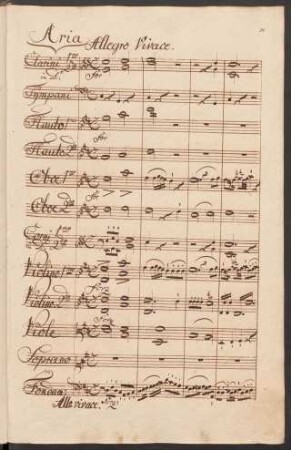 Aria Allegro Vivace.
Clarini 1mo
in
Tympani
Flauto 1mo
Flauto 2do
Oboe 1mo
Oboe 2do
Corni 1mo
Violino 1mo
Violino 2do
Viole
Soprano
Fondam:
Allo vivace.